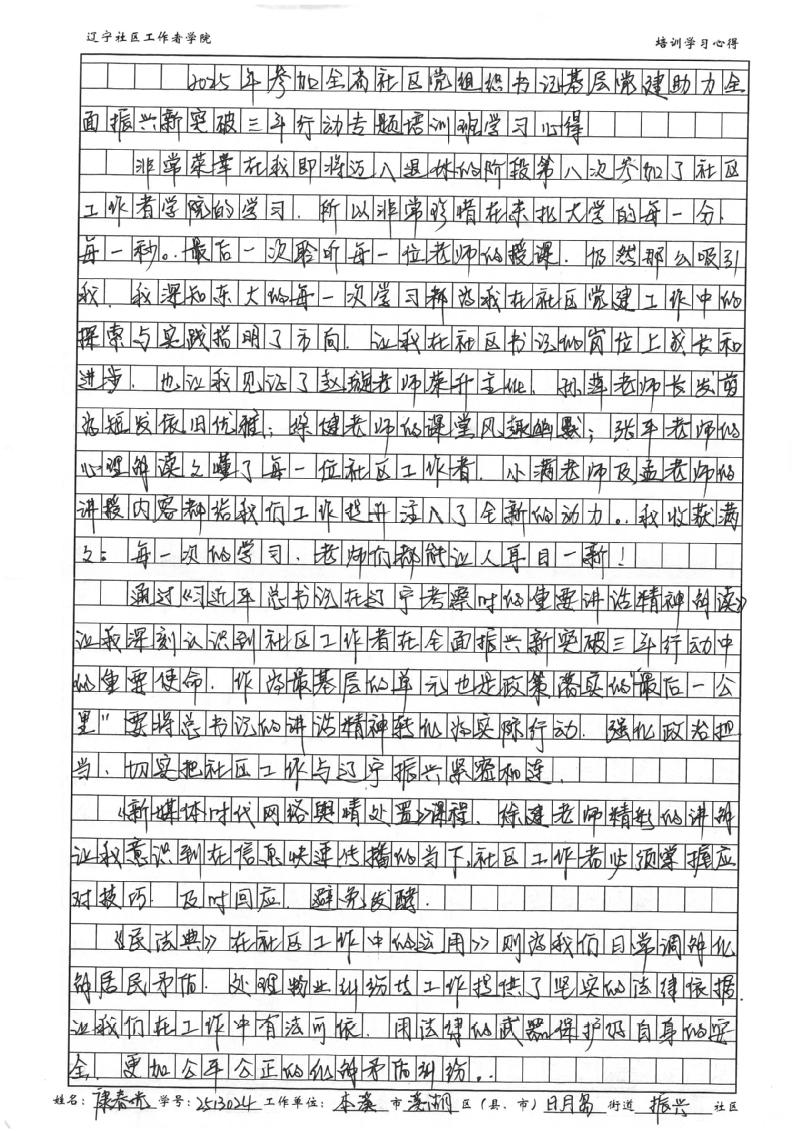 辽宁社区工作者学院 培训学习心得
2025年参加全省社区党组织书记基层党建助力全
面振兴新突破三年行动专题培训班学习心得
非常荣幸在我即将迈入退休的阶段第八次参加了社区
工作者学院的学习．所以非常珍惜在东北大学的每一分．
每一秒。．最后一次聆听每一位老师的授课．仍然那么吸引
我．我深知东大的每一次学习都为我在社区党建工作中的
探索与实践指明了方向．让我在社区书记的岗位上成长和
进步．也让我见证了赵璇老师荣升主任．孙萍老师长发剪
为短发依旧优雅；徐健老师的课堂风趣幽默；张平老师的
心理解读之懂了每一位社区工作者．小满老师及孟老师的
讲授内容都给我们工作提升注入了全新的动力。．我收获满
之：每一次的学习．老师们都能让人耳目一新！
通过《习近平总书记在辽宁考察时的重要讲话精神解读》
让我深刻认识到社区工作者在全面振兴新突破三年行动中
的重要使命．作为最基层的单元也是政策落实的"最后一公
里"要将总书记的讲话精神转化为实际行动．强化政治担
当．切实把社区工作与辽宁振兴紧密相连．
《新媒体时代网络舆情处置》课程．徐健老师精彩的讲解
让我意识到在信息快速传播的当下，社区工作者必须掌握应
对技巧．及时回应．避免发酵．
《《民法典》在社区工作中的运用》》则为我们日常调解化
解居民矛盾．处理物业纠纷等工作提供了坚实的法律依据．
让我们在工作中有法可依．用法律的武器保护好自身的安
全．更加公平公正的化解矛盾纠纷。．
姓名：康春光 学号：2513024 工作单位：本溪 市 溪湖 区（县、市）日月岛 街道 振兴 社区